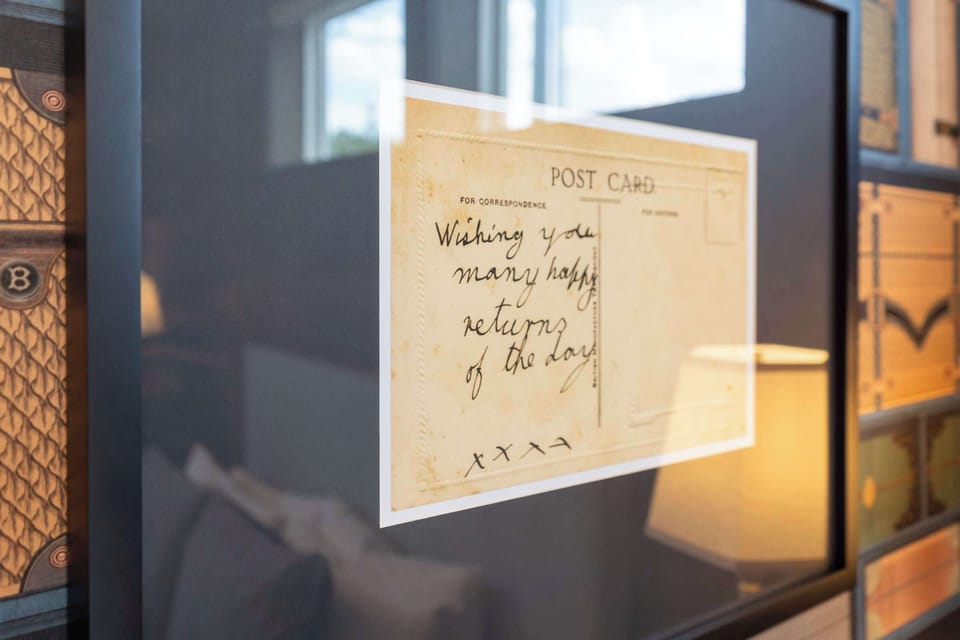 POST CARD
FOR CORRESPONDENCE
Wishing you
many happy
returns
of the day
x x x x
B